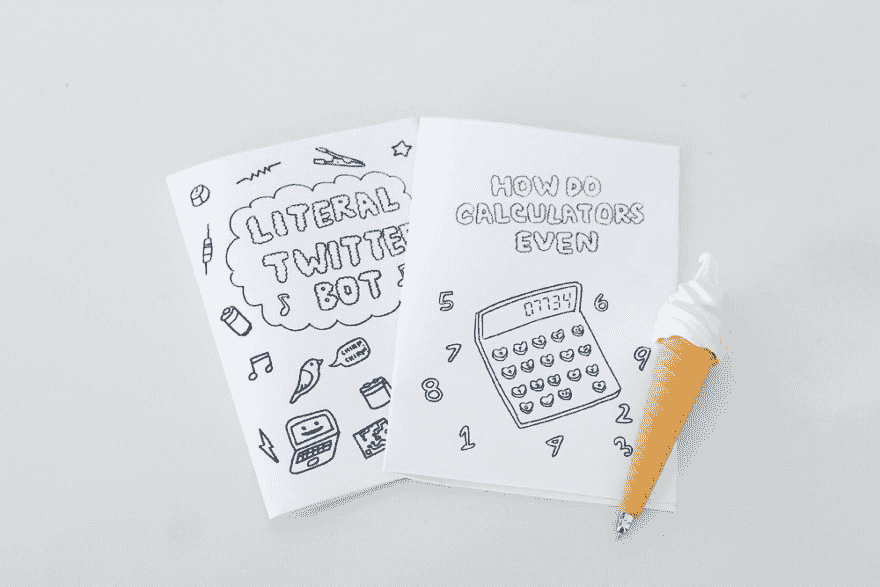 LITERAL
TWITTER
BOT
CHIRP
CHIRP
HOW DO
CALCULATORS
EVEN
07734
5
6
7
9
8
2
1
9
3